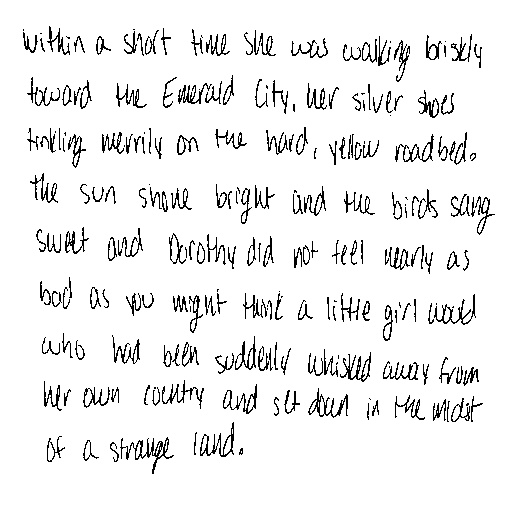 within a short time she was walking briskly
toward the Emerald City, her silver shoes
tinkling merrily on the hard, yellow roadbed.
The sun shone bright and the birds sang
sweet and Dorothy did not feel nearly as
bad as you might think a little girl would
who had been suddenly whisked away from
her own country and set down in the midst
of a strange land.